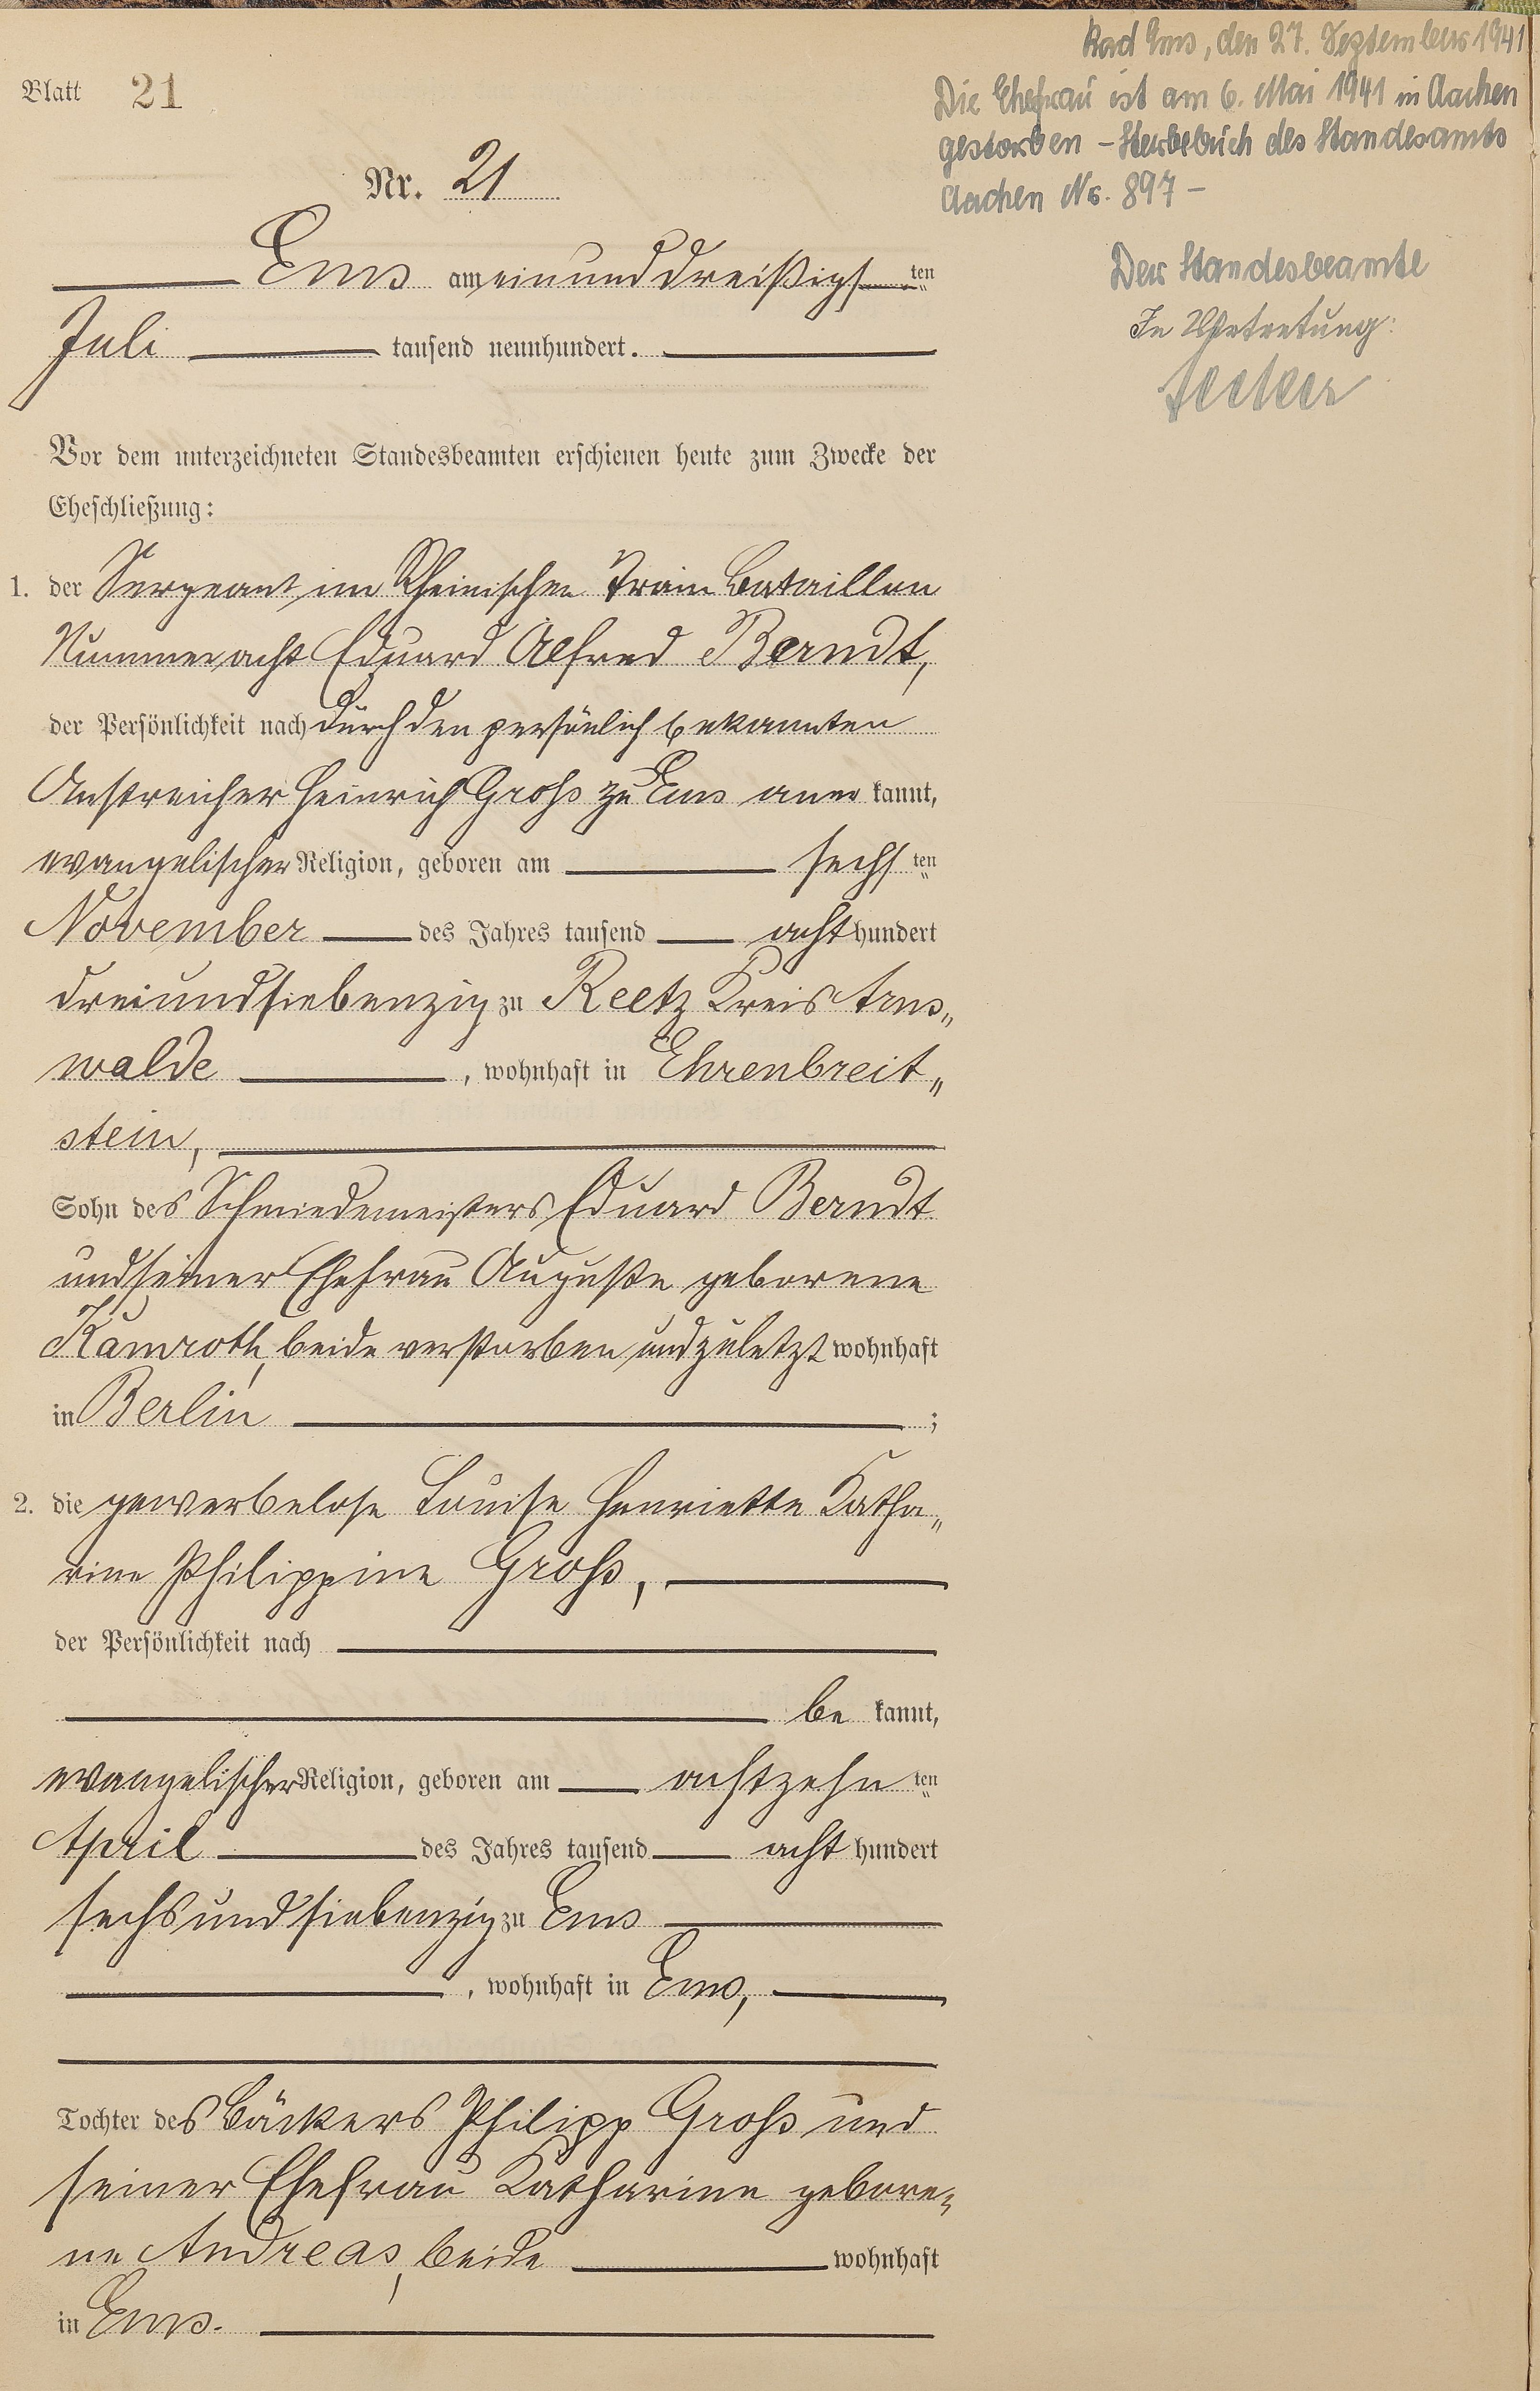 Blatt 21
Nr. 21
Ems am einunddreißigsten
Juli tausend neunhundert.
Vor dem unterzeichneten Standesbeamten erschienen heute zum Zwecke der
Eheschließung:
1. der Sergeant im Rheinischen Train Bataillon
Nummer acht Eduard Alfred Berndt,
der Persönlichkeit nach durch den persönlich bekannten
Anstreicher Heinrich Groß zu Ems anerkannt,
evangelischer Religion, geboren am sechsten
November des Jahres tausend achthundert
dreiundsiebenzig zu Reetz Kreis Arns„
walde, wohnhaft in Ehrenbreit„
stein,
Sohn des Schmiedemeisters Eduard Berndt
und seiner Ehefrau Auguste geborene
Kamroth, beide verstorben und zuletzt wohnhaft
in Berlin ;
2. die gewerbelose Louise Henriette Katha„
rine Philippine Groß,
der Persönlichkeit nach
bekannt,
evangelischer Religion, geboren am achtzehnten
April des Jahres tausend achthundert
sechsundsiebenzig zu Ems
, wohnhaft in Ems,
Tochter des Bäckers Philipp Groß und
seiner Ehefrau Katharine gebore„
ne Andreas, beide wohnhaft
in Ems.
Bad Ems, den 27. September 1941
Die Ehefrau ist am 6. Mai 1941 in Aachen
gestorben – Sterbebuch des Standesamts
Aachen Nr. 897 –
Der Standesbeamte
In Vertretung: